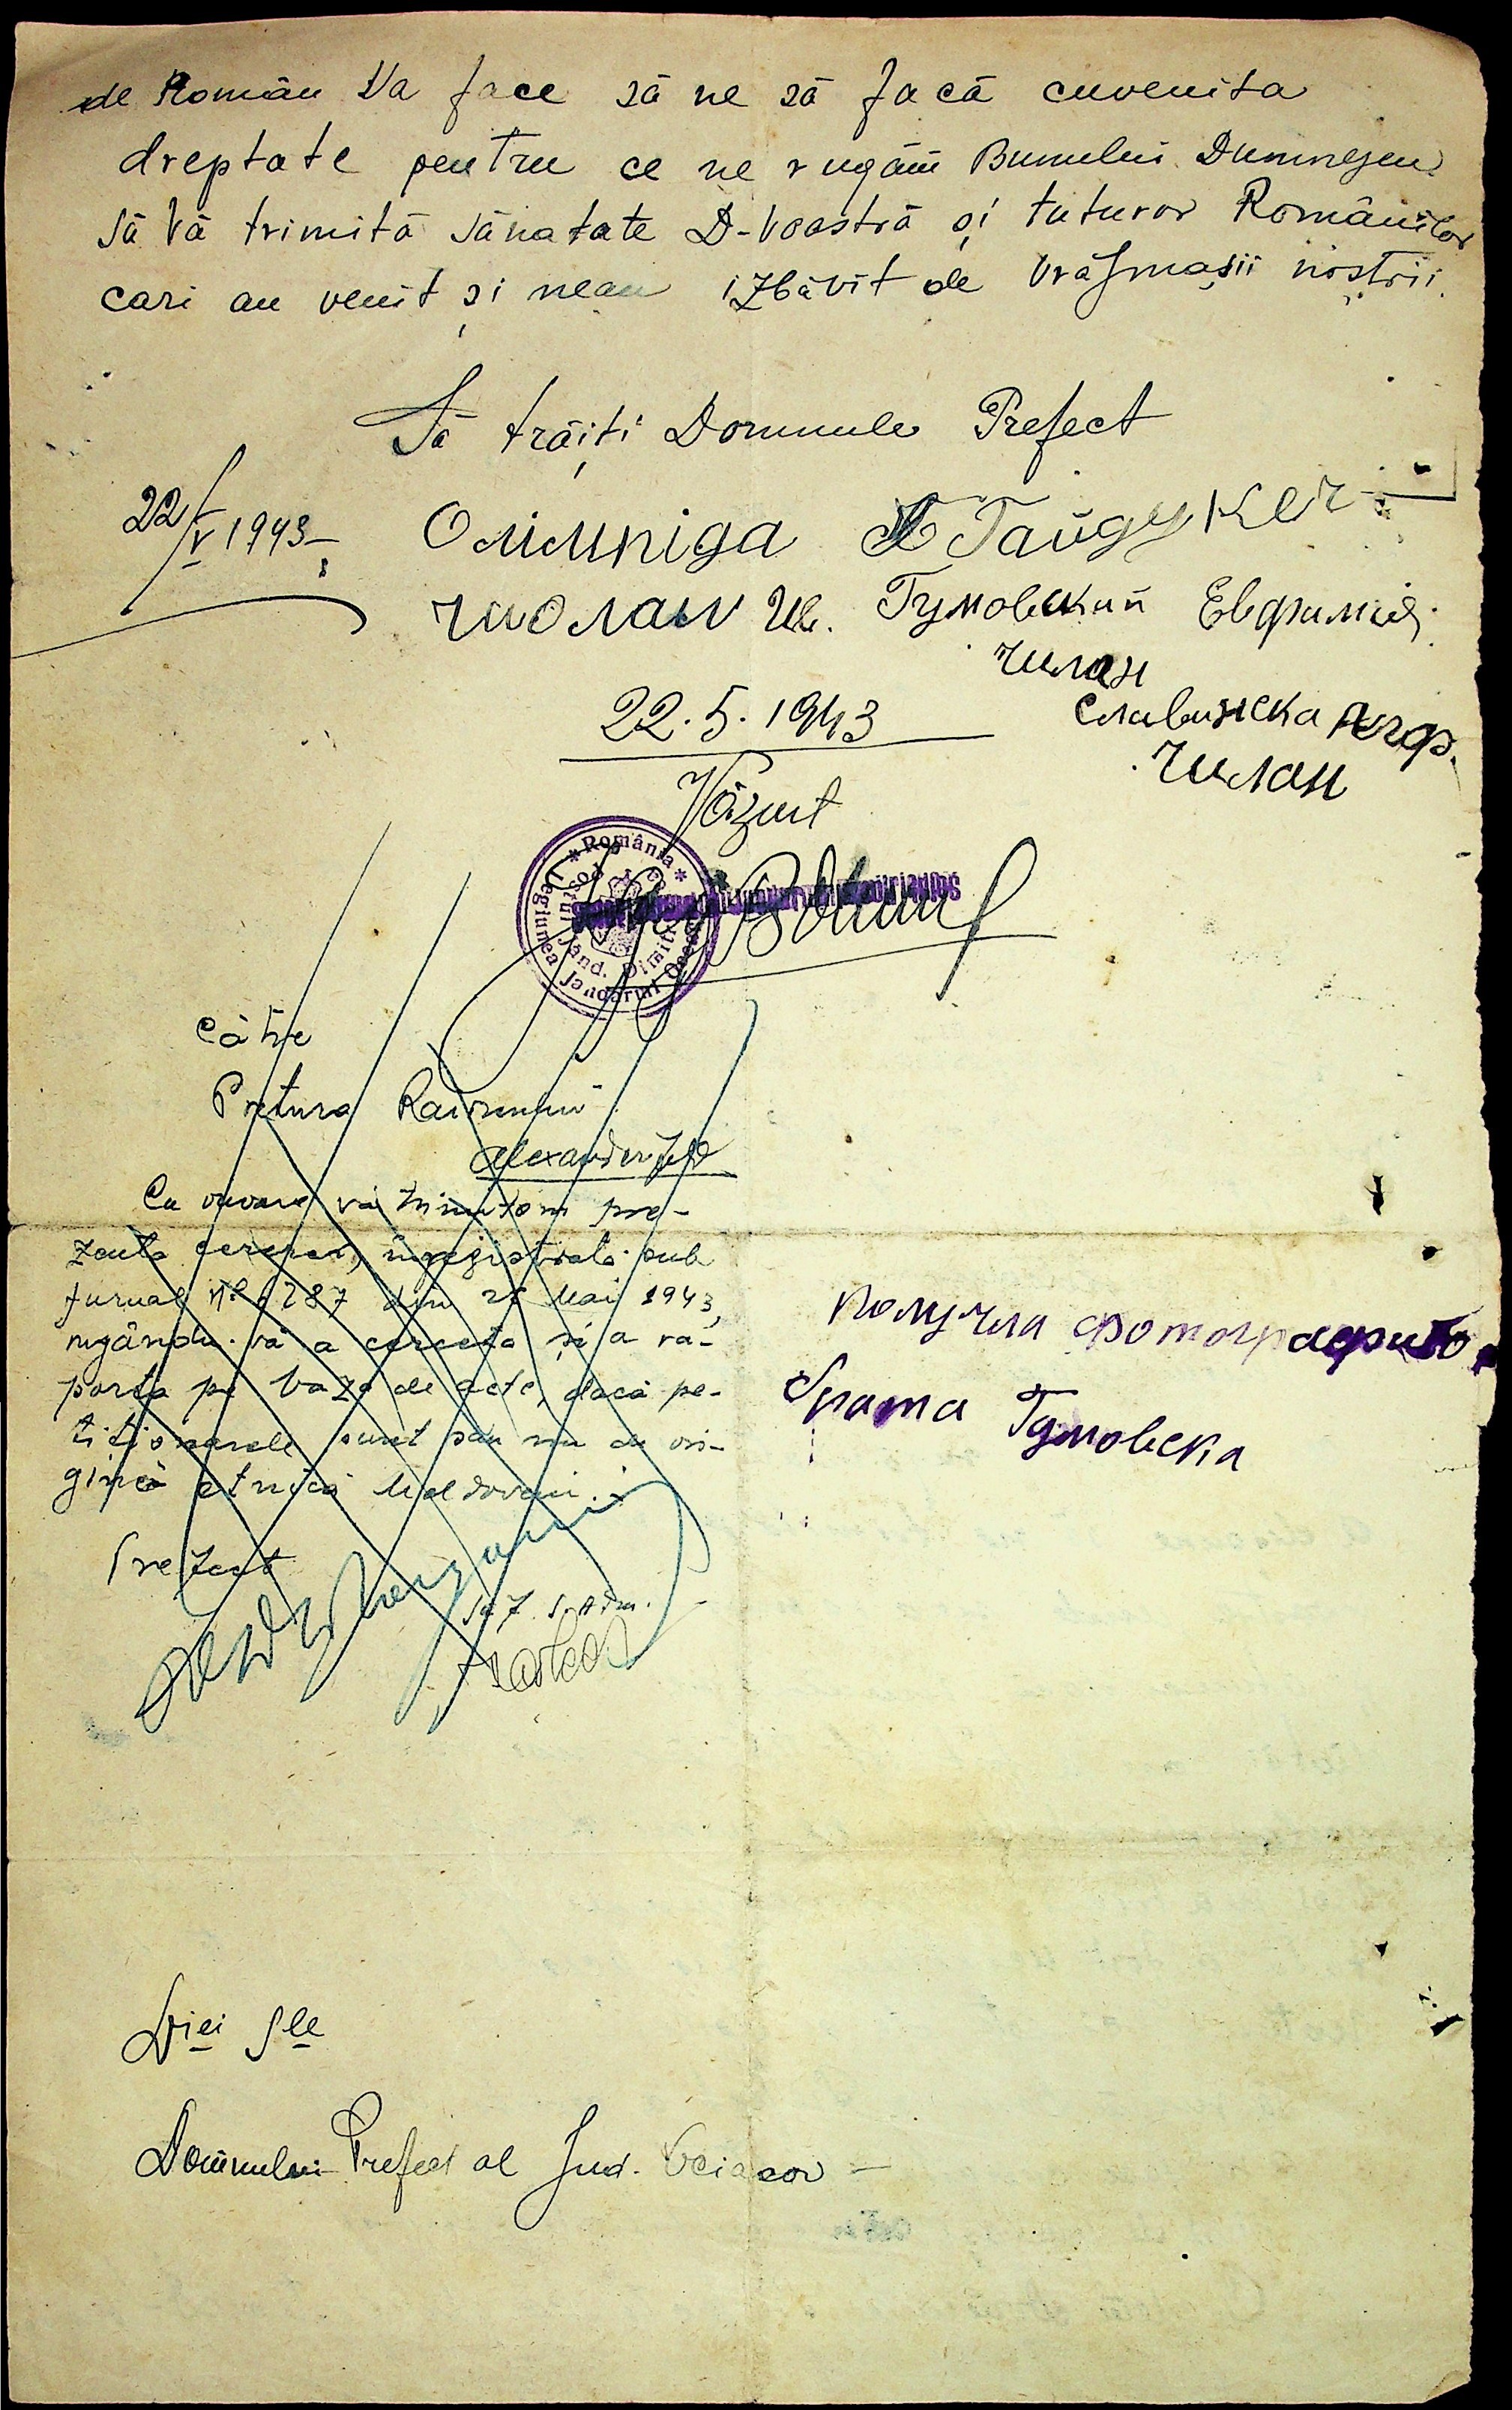 de Român Va face să ne să facă cuvenita
dreptate pentru ce ne rugăm Bunului Dumnezeu
să Vă trimită sănatate D-Voastră și tuturor Românilor
cari au venit și neau izbăvit de vrăjmașii noștrii.
Să trăiți Domnule Prefect
22/V 1943
Олімпіда Гайду
Гумовский Евфимия
чилан
Славинска Агаф.
чилан
22.5.1943
Văzut
România
Legiunea Jandarmi
Postul Jand.
Către
Pretura Raionului
Alexanderfeld
Cu onoare vă trimitem pre-
zenta cerere, înregistrată sub
jurnal No 1287 din 26 Mai 1943,
rugându-vă a cerceta și a ra-
porta pe bază de acte, dacă pe-
tiționarele sunt sau nu de ori-
gină etnică Moldoveni.
Prefect
получила фотографию
брата Гумовска
D-iei Sle
Domnului Prefect al Jud. Oceacov